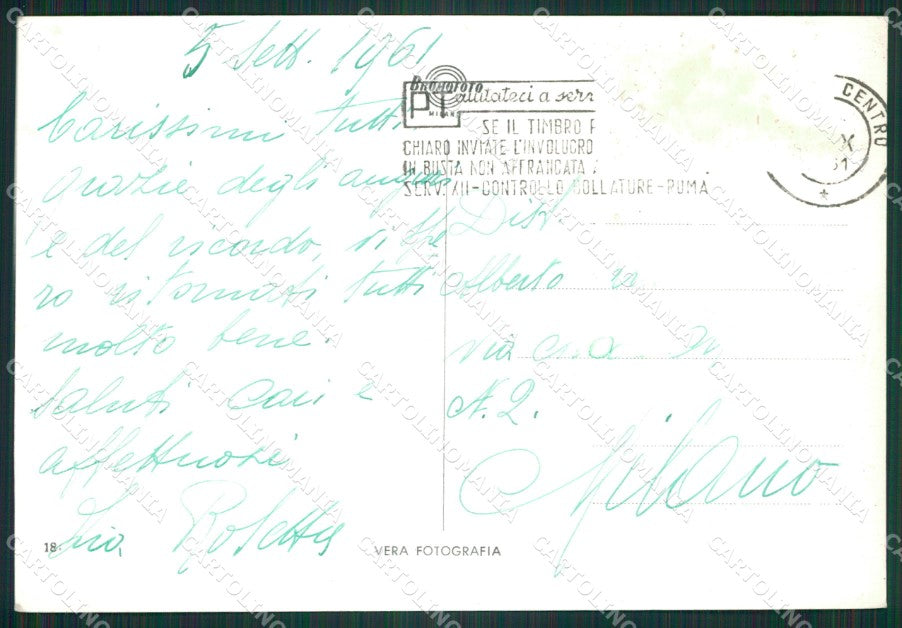 5 Sett. 1961
Carissimi tutti
grazie degli auguri
e del ricordo, vi spe
ro ritornati tutti
molto bene.
Saluti cari e
affettuosi
Zia, Rosetta
BROMOFOTO
MILANO
PT aiutateci a serv
SE IL TIMBRO
CHIARO INVIATE L'INVOLUCRO
IN BUSTA NON AFFRANCATA A
SERV. VII-CONTROLLO BOLLATURE-ROMA
CENTRO
Alberto
Via
N. 2.
Milano
18.
VERA FOTOGRAFIA
CARTOLINOMANIA